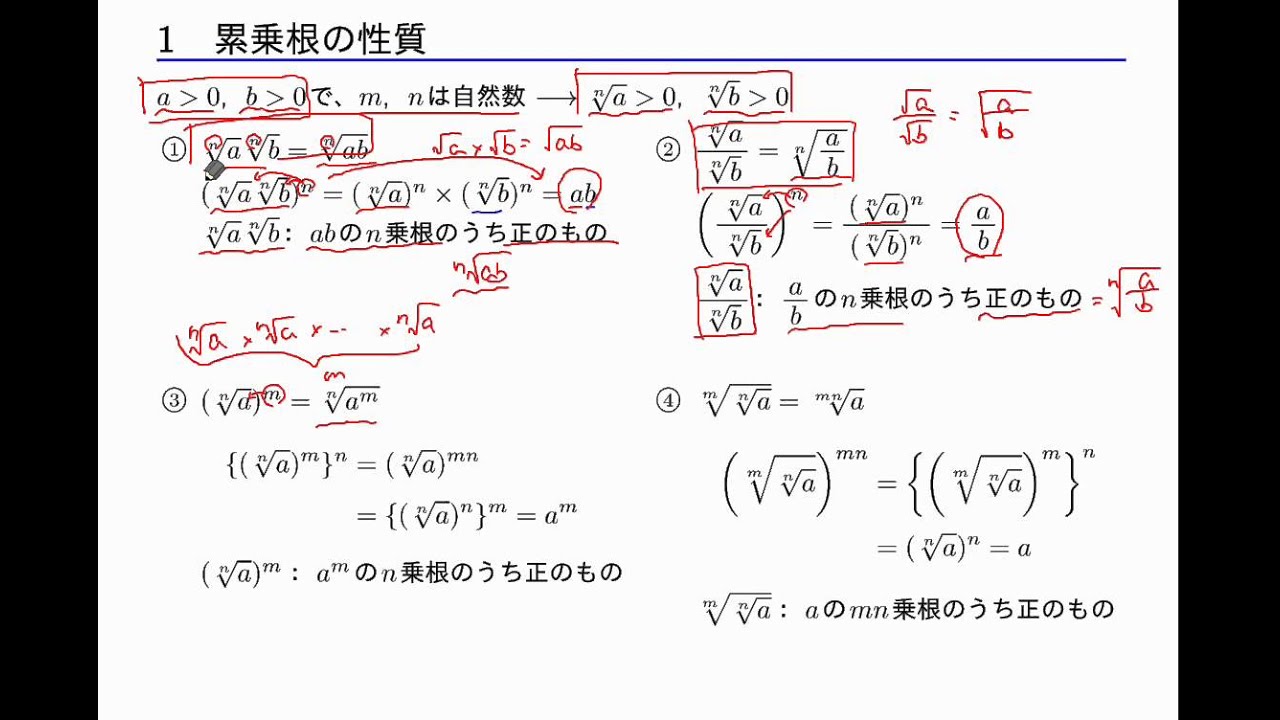 1 累乗根の性質
a > 0, b > 0 で、m, n は自然数 ⟶ ⁿ√a > 0, ⁿ√b > 0
① ⁿ√a ⁿ√b = ⁿ√(ab)
√a × √b = √(ab)
(ⁿ√a ⁿ√b)ⁿ = (ⁿ√a)ⁿ × (ⁿ√b)ⁿ = ab
ⁿ√a ⁿ√b : abのn乗根のうち正のもの
ⁿ√(ab)
② ⁿ√a / ⁿ√b = ⁿ√(a/b)
√a / √b = √(a/b)
(ⁿ√a / ⁿ√b)ⁿ = (ⁿ√a)ⁿ / (ⁿ√b)ⁿ = a/b
ⁿ√a / ⁿ√b : a/b のn乗根のうち正のもの = ⁿ√(a/b)
ⁿ√a × ⁿ√a × … × ⁿ√a
m
③ (ⁿ√a)ᵐ = ⁿ√(aᵐ)
{(ⁿ√a)ᵐ}ⁿ = (ⁿ√a)ᵐⁿ
= {(ⁿ√a)ⁿ}ᵐ = aᵐ
(ⁿ√a)ᵐ : aᵐのn乗根のうち正のもの
④ ᵐ√(ⁿ√a) = ᵐⁿ√a
(ᵐ√(ⁿ√a))ᵐⁿ = {(ᵐ√(ⁿ√a))ᵐ}ⁿ
= (ⁿ√a)ⁿ = a
ᵐ√(ⁿ√a) : aのmn乗根のうち正のもの